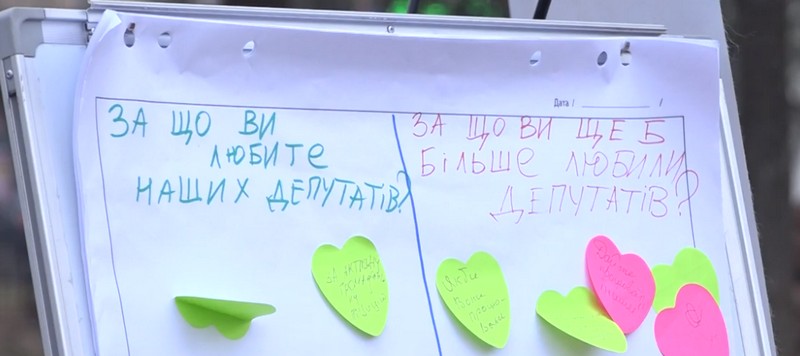 Дата / /
ЗА ЩО ВИ
ЛЮБИТЕ
НАШИХ ДЕПУТАТІВ?
ЗА ЩО ВИ ЩЕ Б
БІЛЬШЕ ЛЮБИЛИ
ДЕПУТАТІВ?
Якби
були